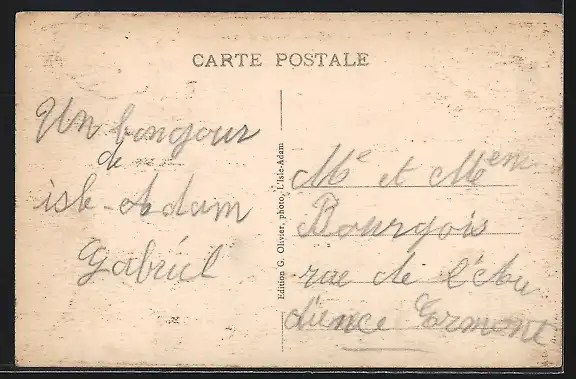 CARTE POSTALE
Un bongour
de
isle-Adam
Gabriel
Edition G. Olivier, photo, L'Isle-Adam
Me et Mem
Bourgois
rue de l'Au
dience Ermont